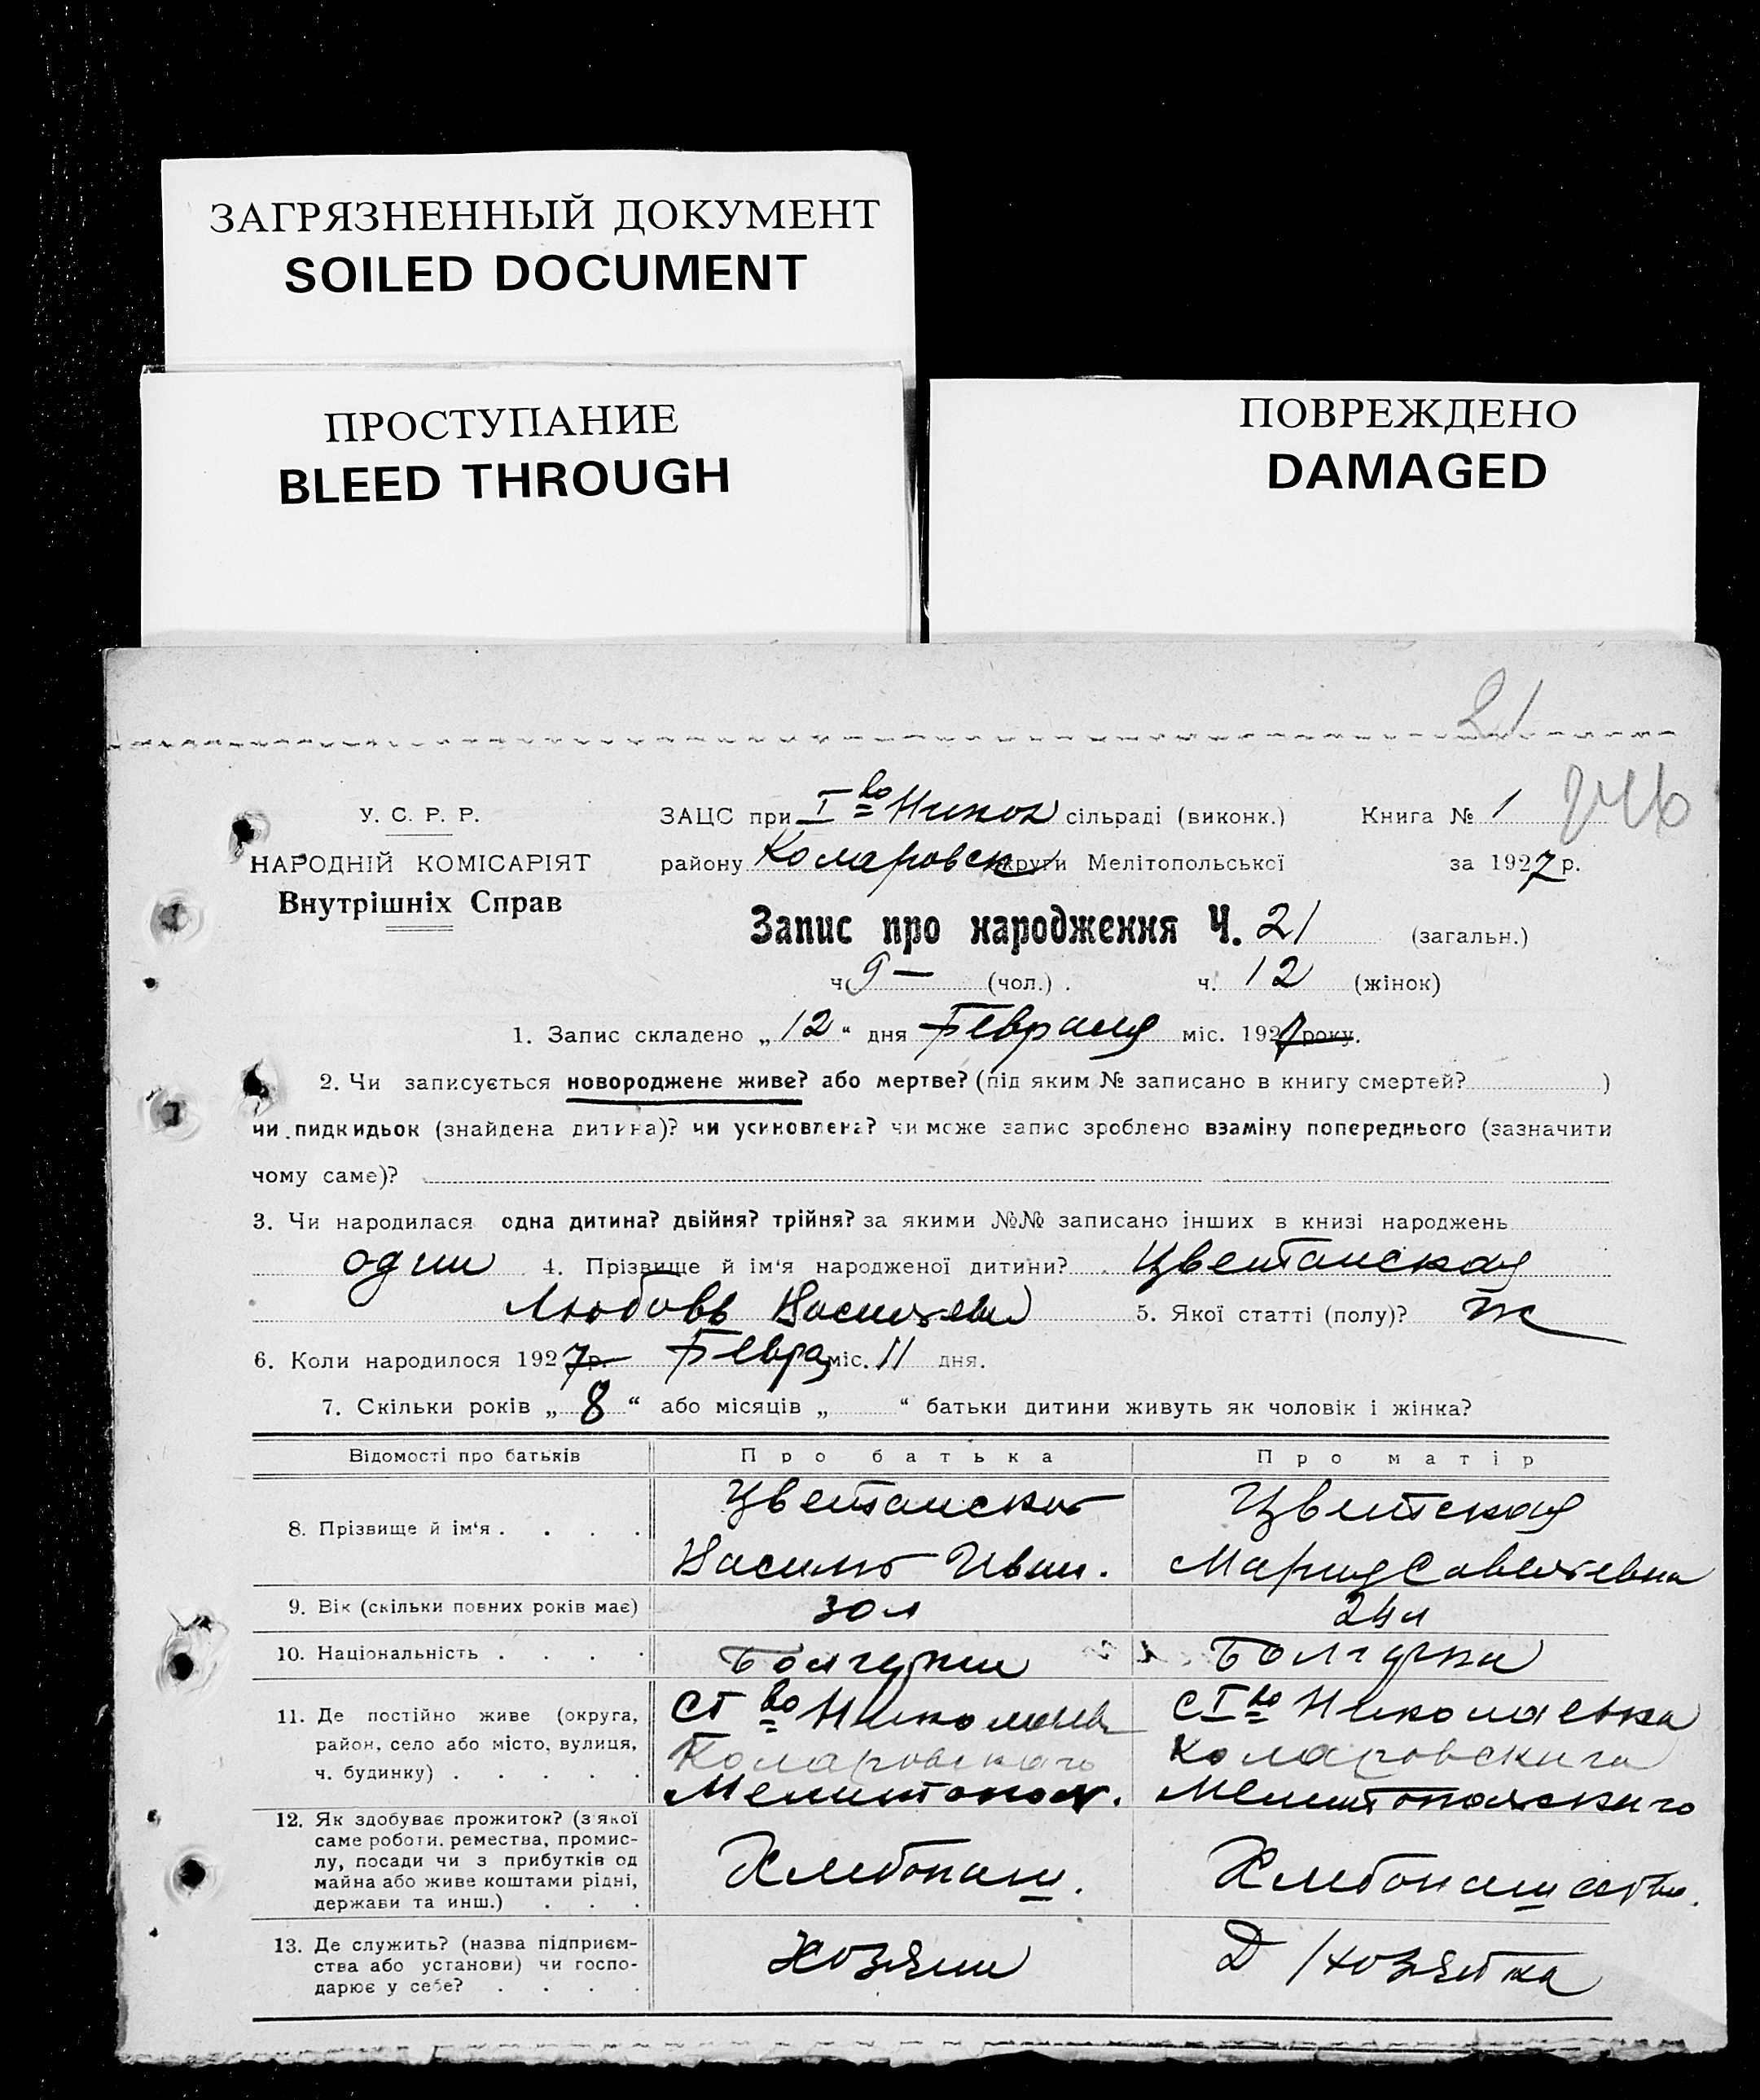 ЗАГРЯЗНЕННЫЙ ДОКУМЕНТ
SOILED DOCUMENT
ПРОСТУПАНИЕ
BLEED THROUGH
ПОВРЕЖДЕНО
DAMAGED
21
У. С. Р. Р.
НАРОДНІЙ КОМІСАРІЯТ
Внутрішніх Справ
ЗАЦС при I во Никол сільраді (виконк.) Книга № 1
району Коларовск округи Мелітопольської за 1927 р.
Запис про народження Ч. 21 (загальн.)
ч. 9 — (чол.) . ч. 12 (жінок)
1. Запис складено „ 12 “ дня Февраля міс. 1927 року.
2. Чи записується новороджене живе? або мертве? (під яким № записано в книгу смертей? )
чи пидкидьок (знайдена дитина)? чи усиновлена? чи може запис зроблено взаміну попереднього (зазначити
чому саме)?
3. Чи народилася одна дитина? двійня? трійня? за якими №№ записано інших в книзі народжень
один 4. Прізвище й ім‘я народженої дитини? Цветанская
Любовь Васильев 5. Якої статті (полу)? ж
6. Коли народилося 1927 р. Февра міс. 11 дня.
7. Скільки років „ 8 “ або місяців „ “ батьки дитини живуть як чоловік і жінка?
Відомості про батьків Про батька Про матір
8. Прізвище й ім‘я . . . .
Цветанский
Василь Иван.
Цветская
Мария Савельевна
9. Вік (скільки повних років має) 30 л 24 л
10. Національність . . . . Болгарин Болгарка
11. Де постійно живе (округа,
район, село або місто, вулиця,
ч. будинку) . . . . .
С I во Николаев
Коларовского
Мелитопол.
С I во Николаевка
Коларовскиго
Мелитопольскиго
12. Як здобуває прожиток? (з якої
саме роботи. ремества, промис-
лу, посади чи з прибутків од
майна або живе коштами рідні,
держави та инш.) . . .
Хлебопаш.
Хлебопашество.
13. Де служить? (назва підприєм-
ства або установи) чи госпо-
дарює у себе? . . . .
Хозяин
Д/хозяйка